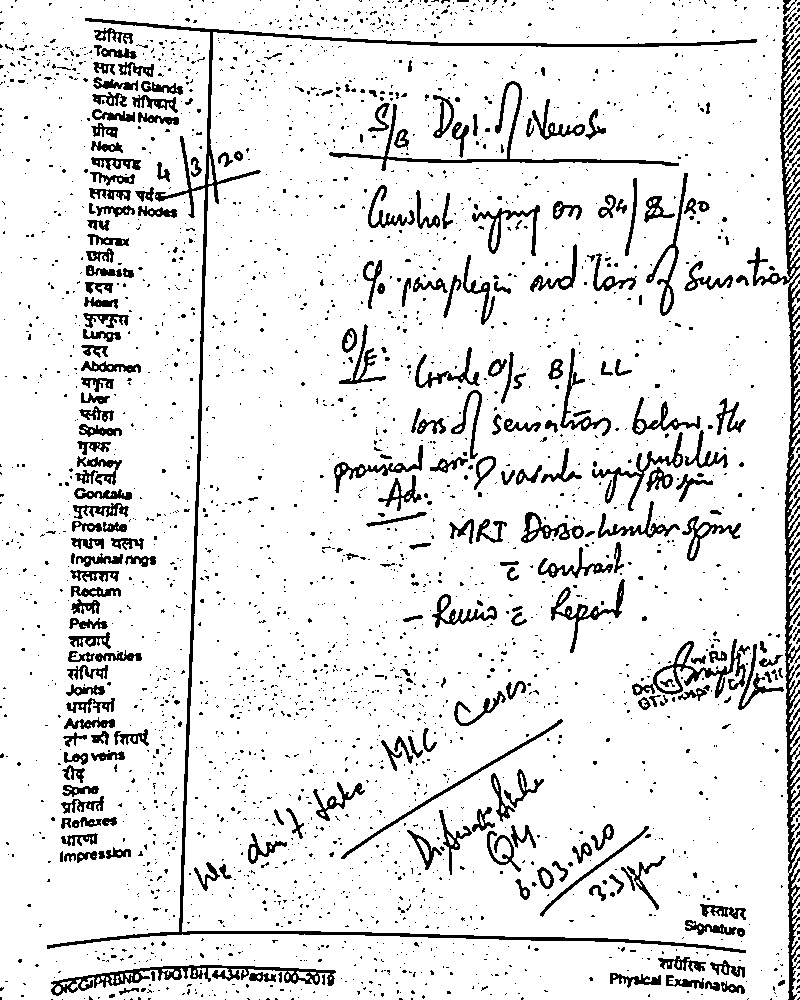 टांसिल
Tonsils
सार ग्रंथियां
Salivari Glands
करोटि तंत्रिकाएं
Cranial Nerves
ग्रीवा
Neck
थाइरायड
Thyroid
4/3/20
लसीका पर्वक
Lympth Nodes
वक्ष
Thorax
छाती
Breasts
हृदय
Heart
फुफ्फुस
Lungs
उदर
Abdomen
यकृत
Liver
प्लीहा
Spleen
वृक्क
Kidney
Gonitalia
पुरस्थग्रंथि
Prostate
Inguinal rings
मलाशय
Rectum
श्रोणी
Pelvis
शाखाएं
Extremities
संधियां
Joints
धमनियां
Arteries
की शिराएं
Leg veins
रीढ़
Spine
प्रतिवर्त
Reflexes
धारणा
Impression
S/B Dept. of Neuros.
Gunshot injury on 24/2/20.
C/o paraplegia and loss of sensation
O/E: Grade 0/5 B/L LL
loss of sensation below the
umbilicus.
Adv.
- MRI Dorso-lumbar spine
c̄ contrast.
- Review c̄ Report.
We don't take MLC Cases.
6.03.2020
हस्ताक्षर
Signature
शारीरिक परीक्षा
Physical Examination